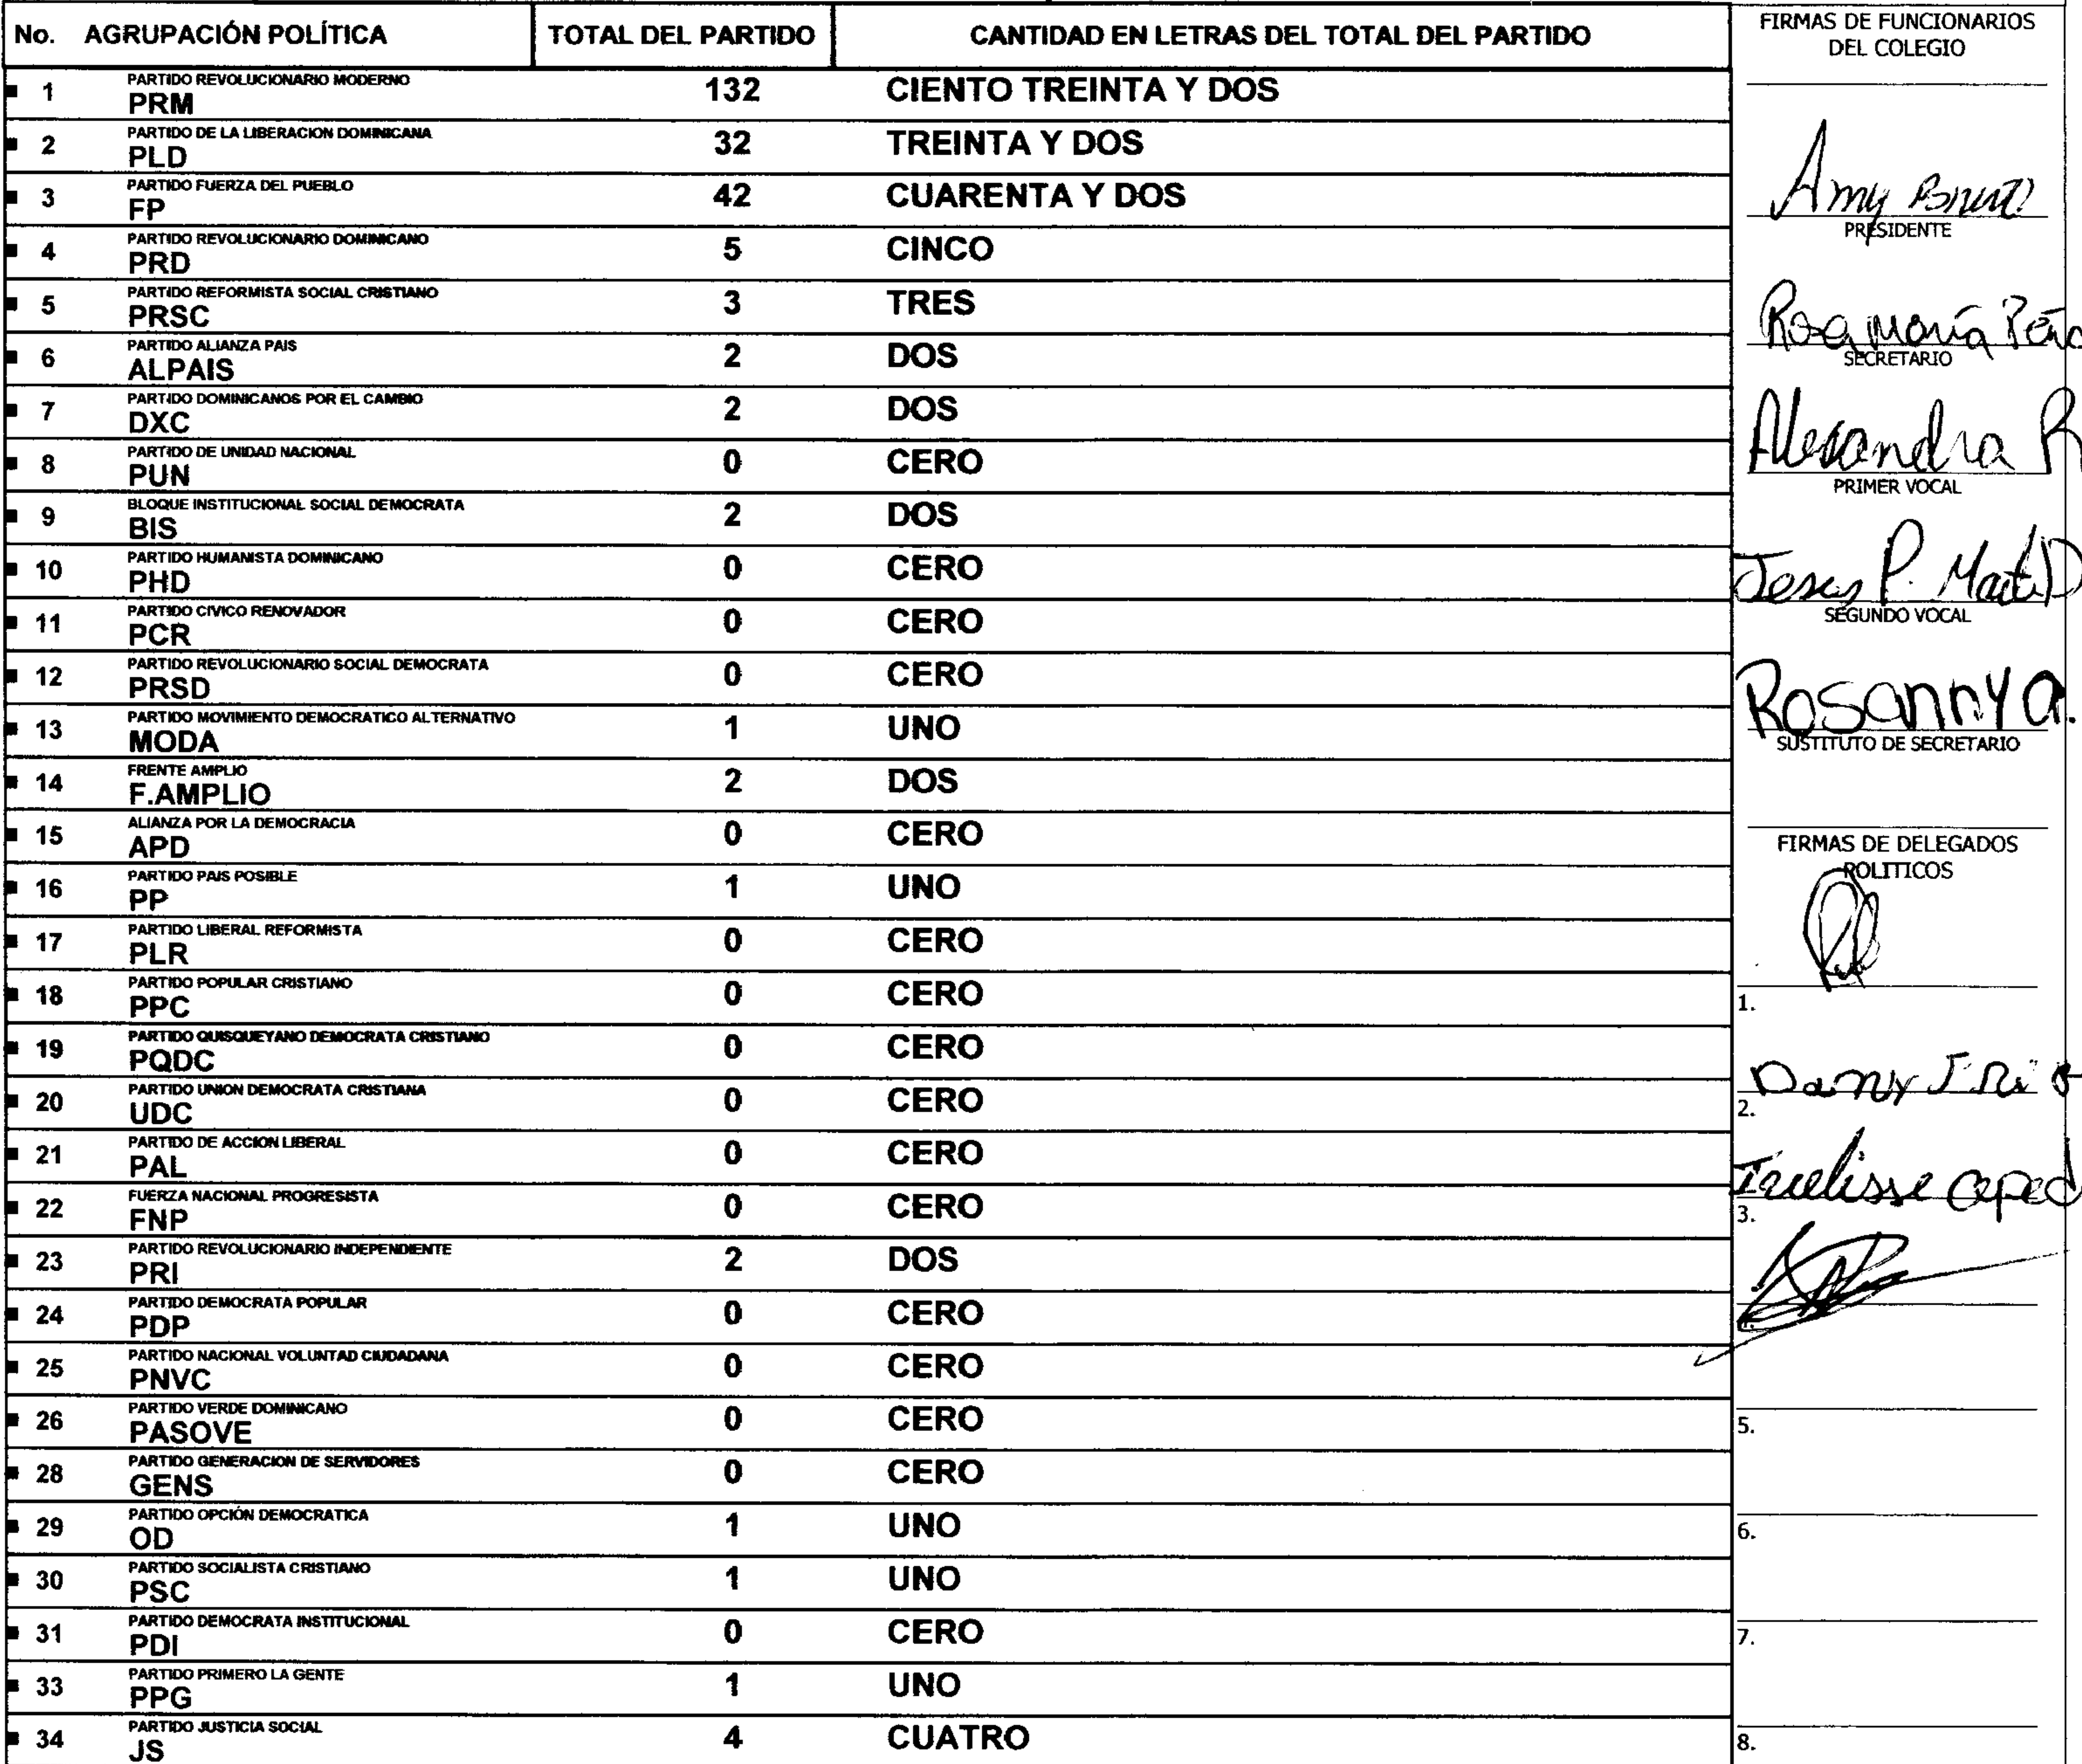 No. AGRUPACIÓN POLÍTICA TOTAL DEL PARTIDO CANTIDAD EN LETRAS DEL TOTAL DEL PARTIDO
1 PARTIDO REVOLUCIONARIO MODERNO
PRM 132 CIENTO TREINTA Y DOS
2 PARTIDO DE LA LIBERACION DOMINICANA
PLD 32 TREINTA Y DOS
3 PARTIDO FUERZA DEL PUEBLO
FP 42 CUARENTA Y DOS
4 PARTIDO REVOLUCIONARIO DOMINICANO
PRD 5 CINCO
5 PARTIDO REFORMISTA SOCIAL CRISTIANO
PRSC 3 TRES
6 PARTIDO ALIANZA PAIS
ALPAIS 2 DOS
7 PARTIDO DOMINICANOS POR EL CAMBIO
DXC 2 DOS
8 PARTIDO DE UNIDAD NACIONAL
PUN 0 CERO
9 BLOQUE INSTITUCIONAL SOCIAL DEMOCRATA
BIS 2 DOS
10 PARTIDO HUMANISTA DOMINICANO
PHD 0 CERO
11 PARTIDO CIVICO RENOVADOR
PCR 0 CERO
12 PARTIDO REVOLUCIONARIO SOCIAL DEMOCRATA
PRSD 0 CERO
13 PARTIDO MOVIMIENTO DEMOCRATICO ALTERNATIVO
MODA 1 UNO
14 FRENTE AMPLIO
F.AMPLIO 2 DOS
15 ALIANZA POR LA DEMOCRACIA
APD 0 CERO
16 PARTIDO PAIS POSIBLE
PP 1 UNO
17 PARTIDO LIBERAL REFORMISTA
PLR 0 CERO
18 PARTIDO POPULAR CRISTIANO
PPC 0 CERO
19 PARTIDO QUISQUEYANO DEMOCRATA CRISTIANO
PQDC 0 CERO
20 PARTIDO UNION DEMOCRATA CRISTIANA
UDC 0 CERO
21 PARTIDO DE ACCION LIBERAL
PAL 0 CERO
22 FUERZA NACIONAL PROGRESISTA
FNP 0 CERO
23 PARTIDO REVOLUCIONARIO INDEPENDIENTE
PRI 2 DOS
24 PARTIDO DEMOCRATA POPULAR
PDP 0 CERO
25 PARTIDO NACIONAL VOLUNTAD CIUDADANA
PNVC 0 CERO
26 PARTIDO VERDE DOMINICANO
PASOVE 0 CERO
28 PARTIDO GENERACION DE SERVIDORES
GENS 0 CERO
29 PARTIDO OPCIÓN DEMOCRATICA
OD 1 UNO
30 PARTIDO SOCIALISTA CRISTIANO
PSC 1 UNO
31 PARTIDO DEMOCRATA INSTITUCIONAL
PDI 0 CERO
33 PARTIDO PRIMERO LA GENTE
PPG 1 UNO
34 PARTIDO JUSTICIA SOCIAL
JS 4 CUATRO
FIRMAS DE FUNCIONARIOS
DEL COLEGIO
Amy
PRESIDENTE
Rosa María Peña
SECRETARIO
Alexandra R
PRIMER VOCAL
Jesus P.
SEGUNDO VOCAL
Rosanny a.
SUSTITUTO DE SECRETARIO
FIRMAS DE DELEGADOS
POLITICOS
1.
Dany J.
2.
3.
5.
6.
7.
8.